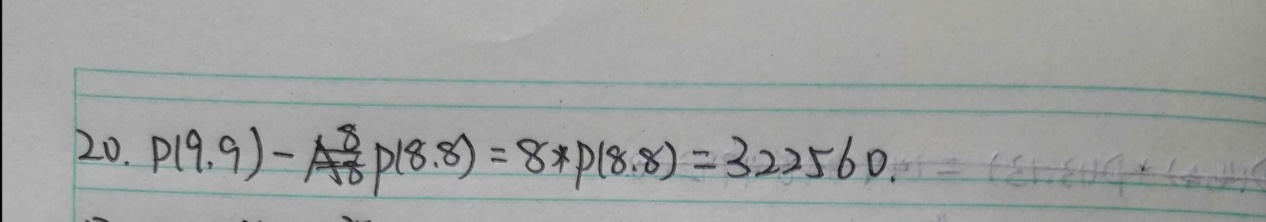 20. P(9.9) - P(8.8) = 8*P(8.8) = 322560.